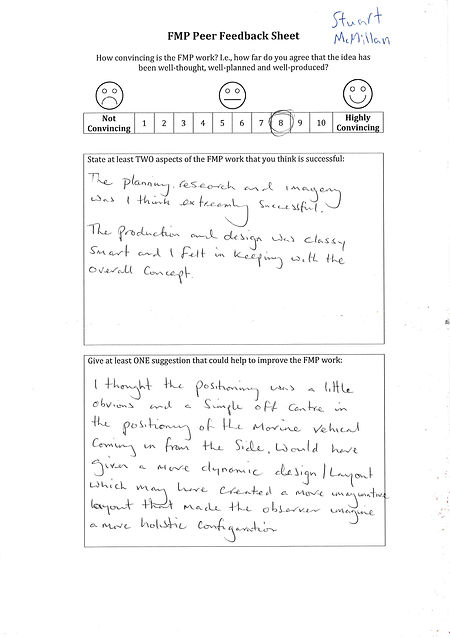 Stuart
McMillan
FMP Peer Feedback Sheet
How convincing is the FMP work? I.e., how far do you agree that the idea has
been well-thought, well-planned and well-produced?
Not
Convincing
1 2 3 4 5 6 7 8 9 10
Highly
Convincing
State at least TWO aspects of the FMP work that you think is successful:
The planning, research and imagery
was I think extreamly successful.
The production and design was classy
smart and I felt in keeping with the
overall concept.
Give at least ONE suggestion that could help to improve the FMP work:
I thought the positioning was a little
obvious and a simple off centre in
the positiony of the Marine vehical
coming in from the side, would have
given a more dynamic design/Layout
which may have created a more imaginative
layout that made the observer imagine
a more holistic configuration